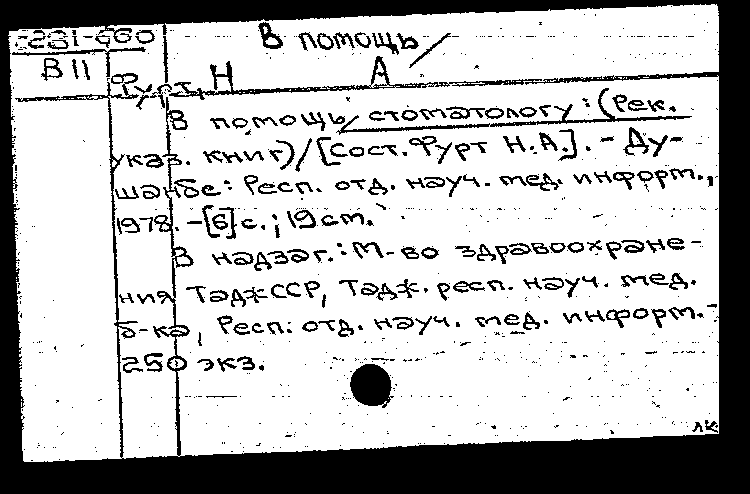 -281-660
В помощь
В 11
Фурт, Н А
В помощь стоматологу: (Рек.
указ. книг)/[Сост. Фурт Н.А.]. - Ду-
шанбе: Респ. отд. науч. мед. информ.,
1978. -[6]с.; 19 см.
В надзаг.: М-во здравоохране-
ния ТаджССР, Тадж. респ. науч. мед.
б-ка, Респ. отд. науч. мед. информ.-
250 экз.
лк